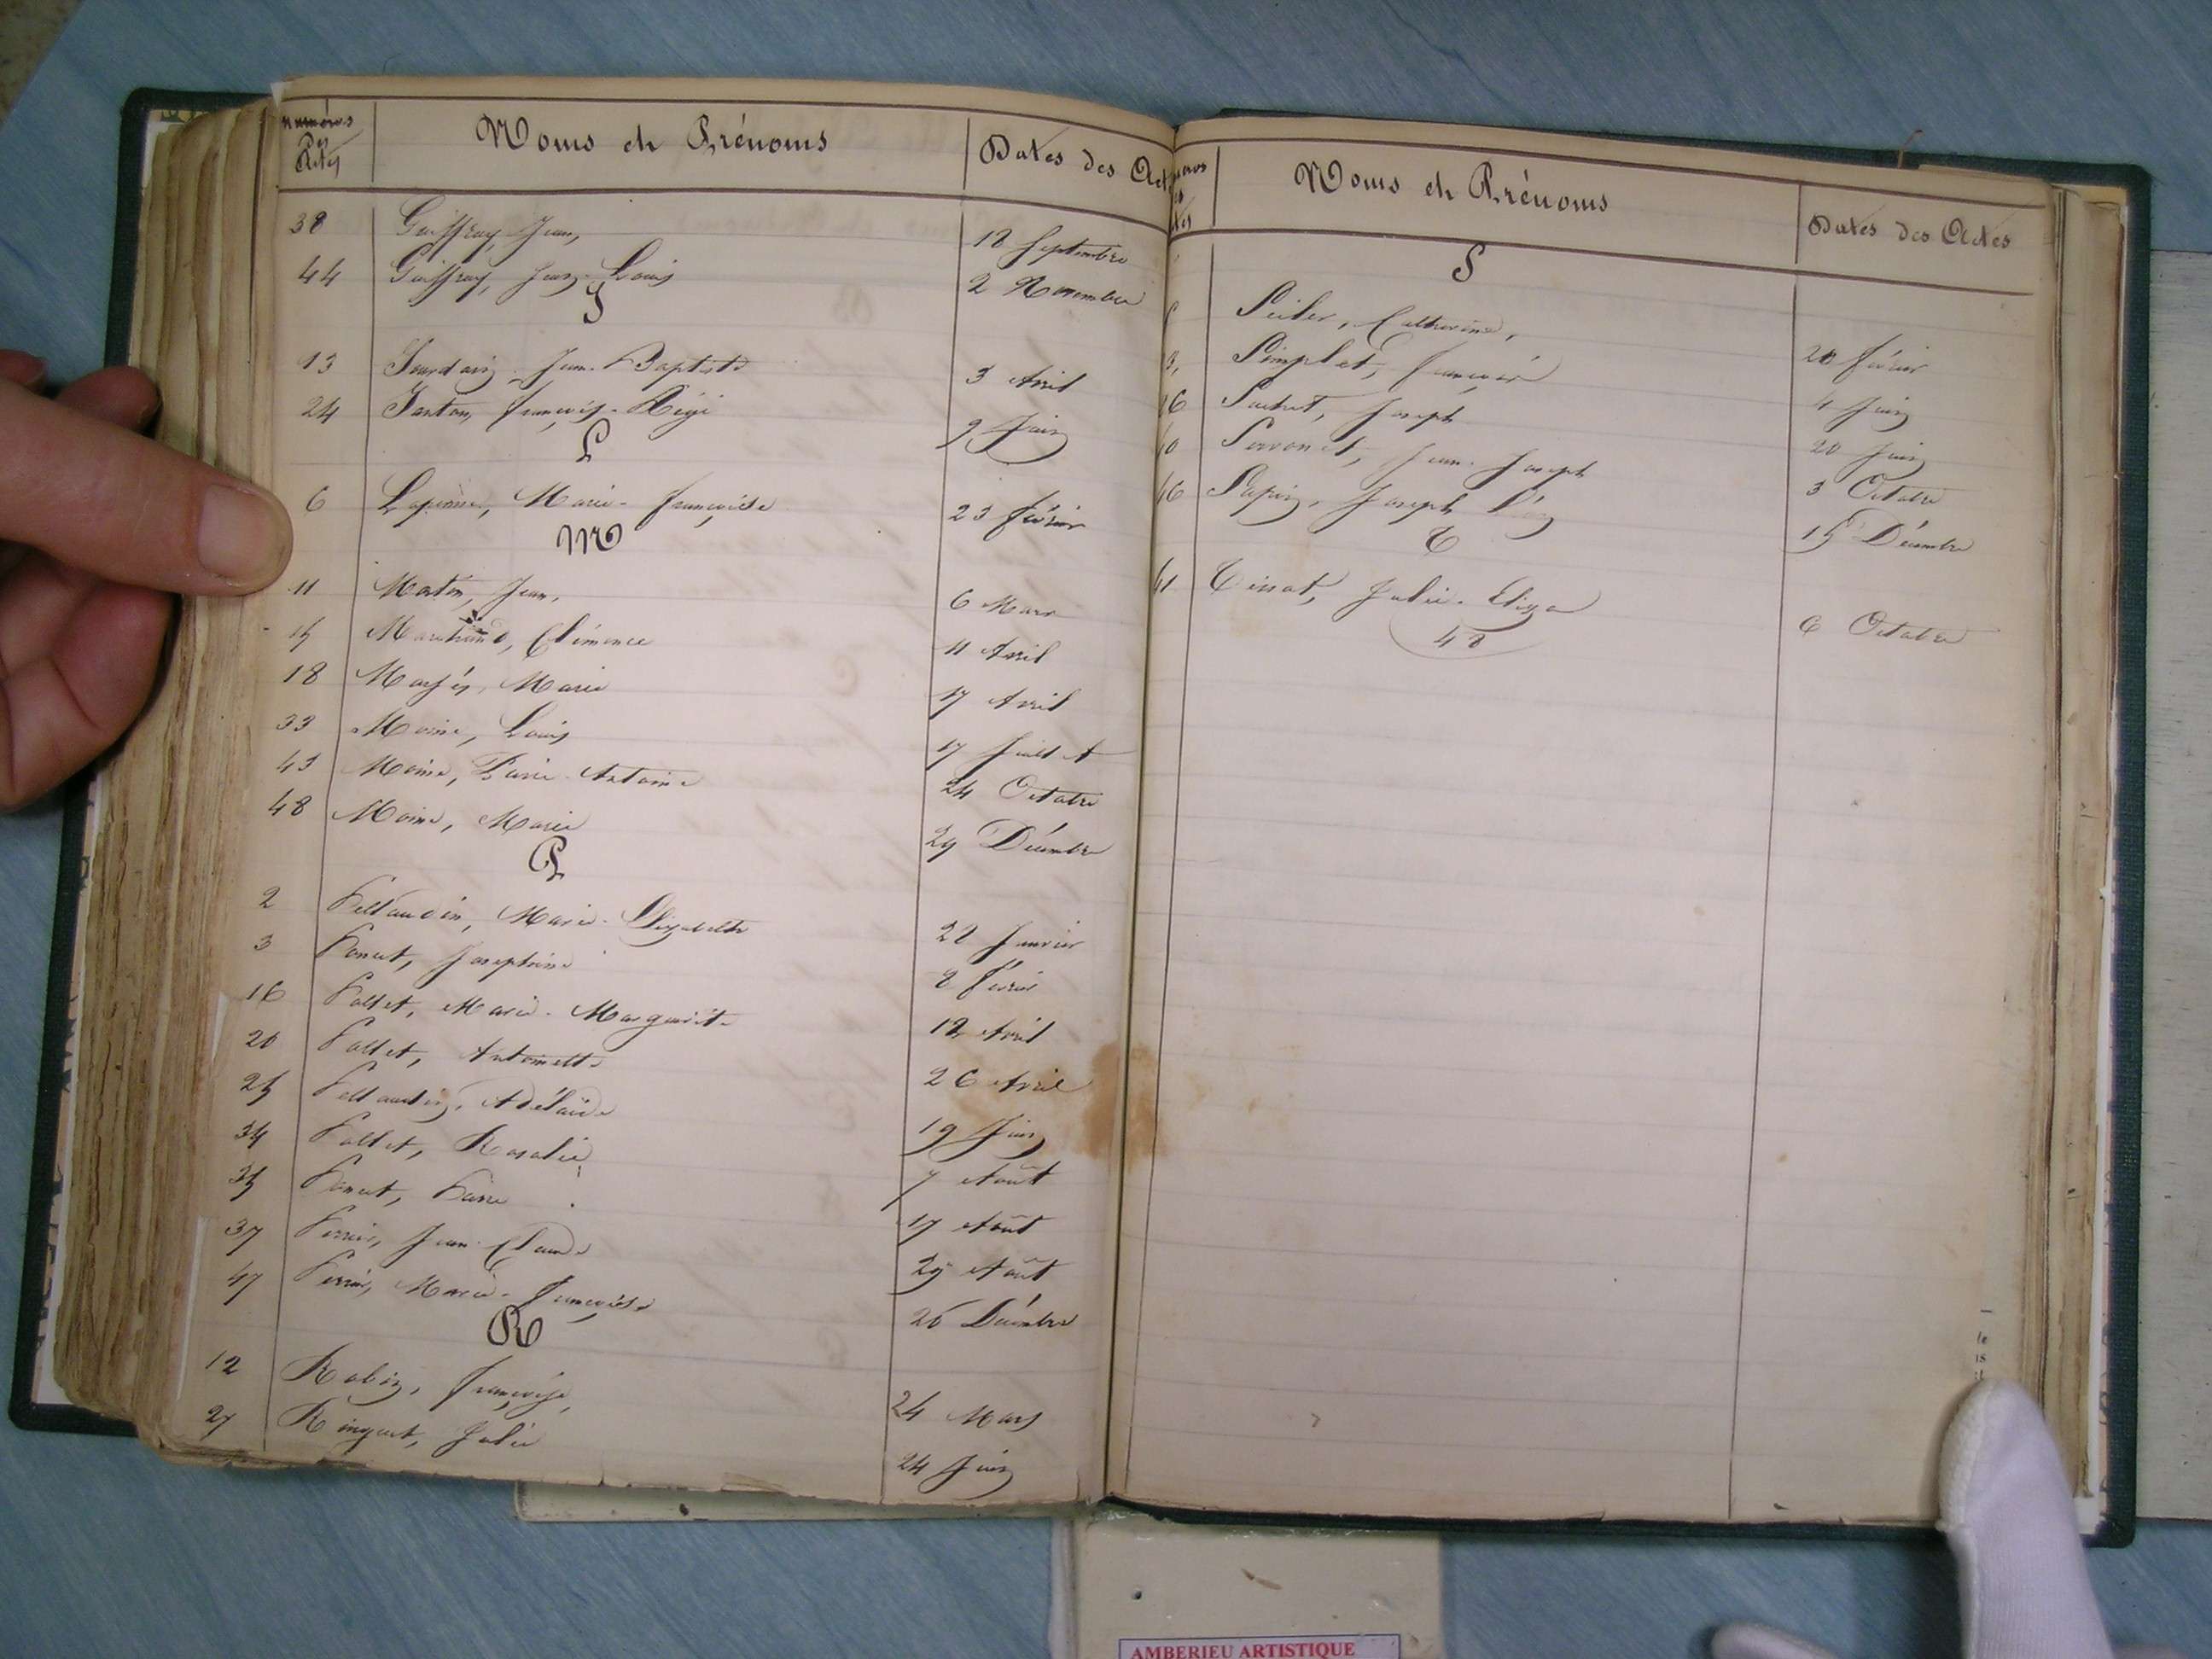 Numéros
Des
Actes
Noms et Prénoms
Dates des Act
38 Guiffray, Jean, 18 Septembre
44 Guiffray, Jean-Louis 2 Novembre
J
13 Jourdain, Jean-Baptiste 3 Avril
24 Janton, François-Régis 9 Juin
L
6 Marie-Françoise 23 Février
M
11 Martin, Jean, 6 Mars
15 Marchand, Clémence 11 Avril
18 Marie 17 Avril
33 Moine, Louis 17 Juillet
43 Moine, Antoine 24 Octobre
48 Moine, Marie 29 Décembre
P
2 Pellaudin, Marie-Elizabeth 22 Janvier
3 Poncet, Josephine 8 Février
16 Pollet, Marie-Marguerite 12 Avril
20 Pollet, Antoinette 26 Avril
25 Pellaudin, Adélaïde 19 Juin
34 Pollet, Rosalie 7 Août
35 Poncet, Pierre 17 Août
37 Perrier, Jean-Claude 29 Août
47 Perrier, Marie-Françoise 26 Décembre
R
12 Robin, Françoise, 24 Mars
27 Ringuet, Julie 24 Juin
Noms et Prénoms
Dates des Actes
S
Seiler, Catherine, 20 Février
Simplet, François 4 Juin
Joseph 20 Juin
Jean-Joseph 3 Octobre
46 Sapin, Joseph 15 Décembre
T
41 Tissot, Julie-Eliza 6 Octobre
48
AMBERIEU ARTISTIQUE